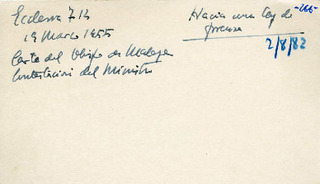 Ecclesia 714
19 Marzo 1955
Carta del Obispo de Malaga
Contestacion del Ministro
Hacia una ley de
prensa
-266-
2/8/82